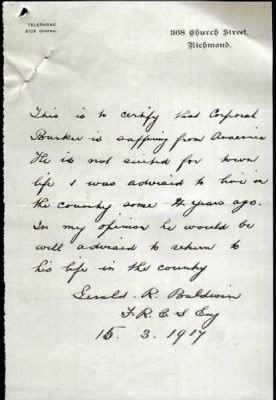 TELEPHONE
368 Church Street,
CENTRAL
Richmond.
This is to certify that Corporal
Barker is suffering from Anaemia
He is not suited for town
life & was advised to live in
the country some 4 years ago.
In my opinion he would be
well advised to return to
his life in the country
Gerald. R. Baldwin
F. R. C S Eng
15. 3. 1917